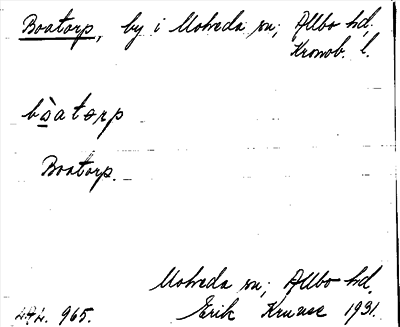 Boatorp, by i Moheda sn; Allbo hd.
Kronob. l.
bòatorp
Boatorp.
Moheda sn; Allbo hd.
L.A.L. 965. Erik Kruuse 1931.